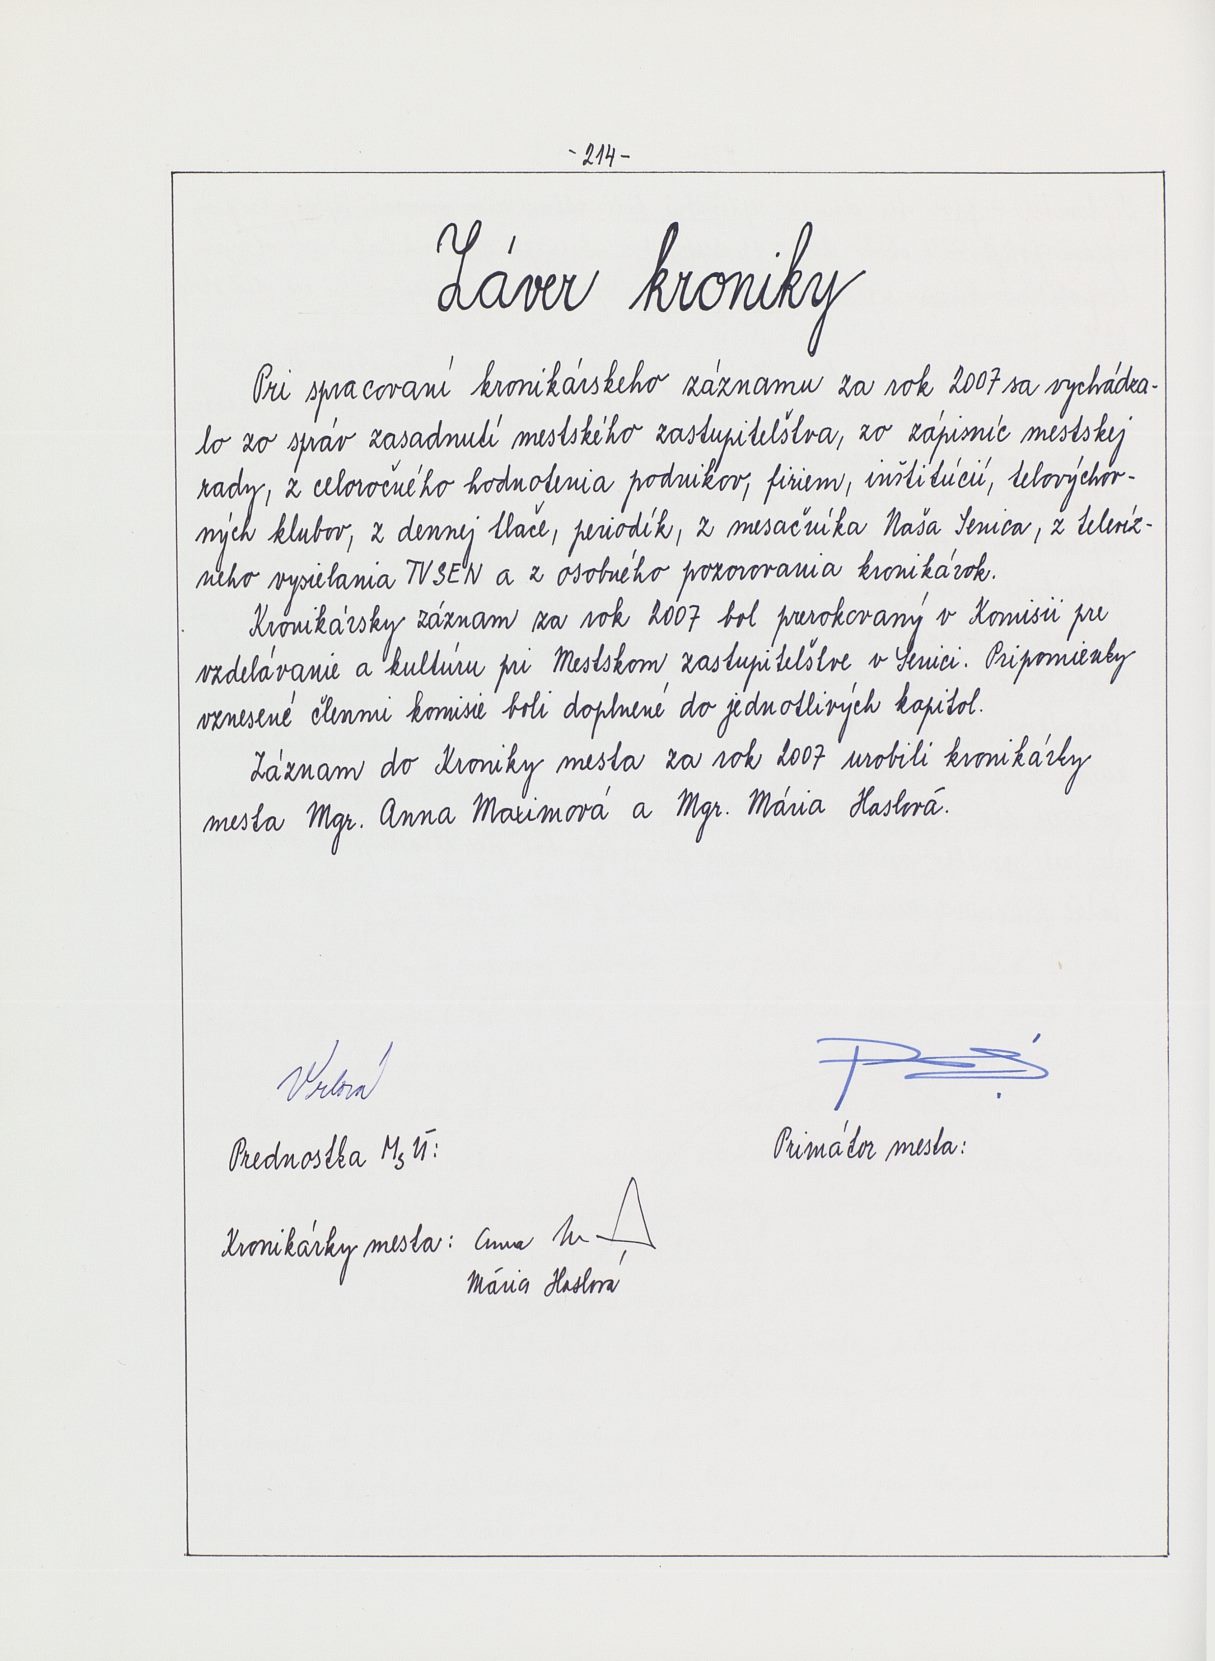 - 214 -
Záver kroniky
Pri spracovaní kronikárskeho záznamu za rok 2007 sa vychádza-
lo zo správ zasadnutí mestského zastupiteľstva, zo zápisníc mestskej
rady, z celoročného hodnotenia podnikov, firiem, inštitúcií, telovýchov-
ných klubov, z dennej tlače, periodík, z mesačníka Naša Senica, z televíz-
neho vysielania TV SEN a z osobného pozorovania kronikárok.
Kronikársky záznam za rok 2007 bol prerokovaný v Komisii pre
vzdelávanie a kultúru pri Mestskom zastupiteľstve v Senici. Pripomienky
vznesené členmi komisie boli doplnené do jednotlivých kapitol.
Záznam do Kroniky mesta za rok 2007 urobili kronikárky
mesta Mgr. Anna Maximová a Mgr. Mária Haslová.
Prednostka MsÚ:
Primátor mesta:
Kronikárky mesta: Anna
Mária Haslová